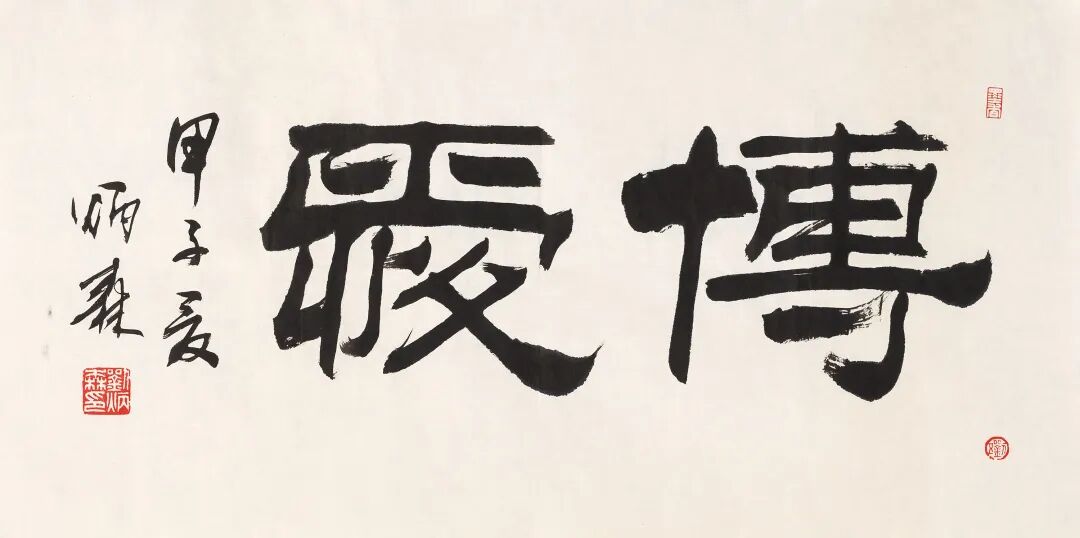 博愛
甲子夏
炳森
劉炳森印
劉